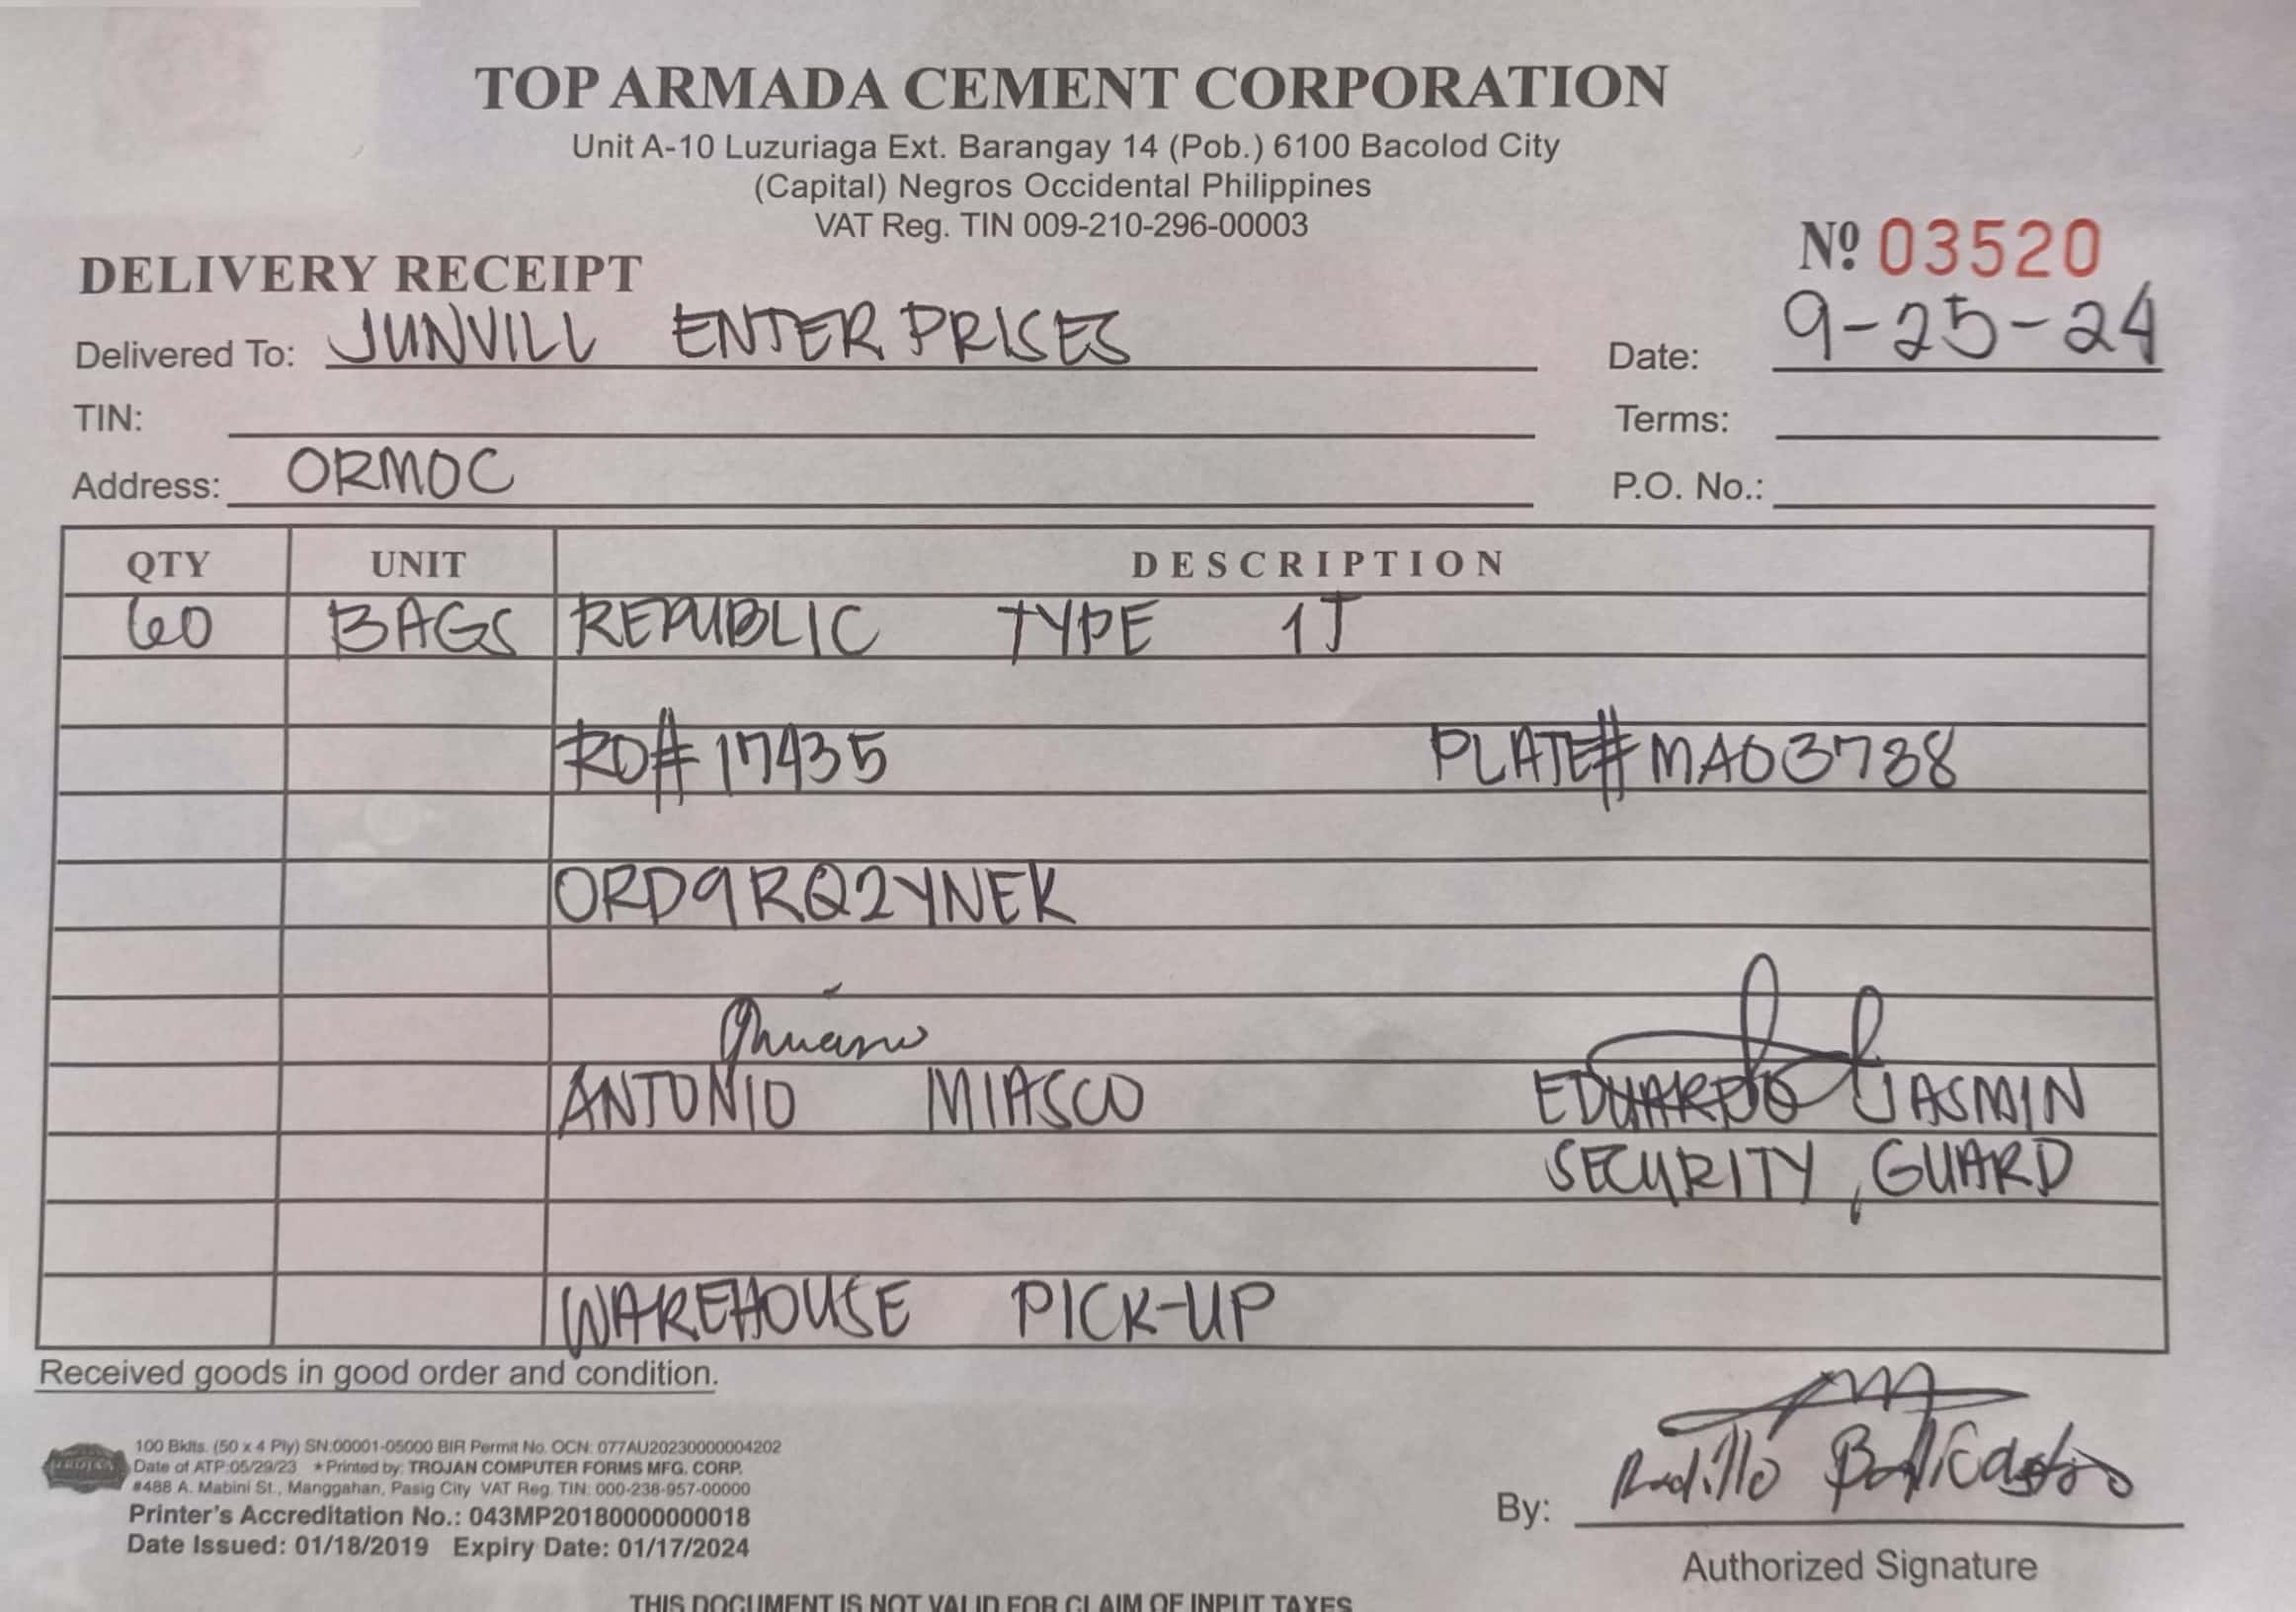 TOP ARMADA CEMENT CORPORATION
Unit A-10 Luzuriaga Ext. Barangay 14 (Pob.) 6100 Bacolod City
(Capital) Negros Occidental Philippines
VAT Reg. TIN 009-210-296-00003
Nº 03520
DELIVERY RECEIPT
Delivered To: JUNVILL ENTERPRISES Date: 9-25-24
TIN: Terms:
Address: ORMOC P.O. No.:
QTY UNIT DESCRIPTION
60 BAGS REPUBLIC TYPE 1T
RO# 17435 PLATE# MAO3738
ORD9RQ2YNEK
ANTONIO MIASCO EDUARDO JASMIN
SECURITY GUARD
WAREHOUSE PICK-UP
Received goods in good order and condition.
100 Bklts. (50 x 4 Ply) SN:00001-05000 BIR Permit No. OCN: 077AU20230000004202
Date of ATP:05/29/23 ★Printed by: TROJAN COMPUTER FORMS MFG. CORP.
#488 A. Mabini St., Manggahan, Pasig City VAT Reg. TIN: 000-238-957-00000
Printer's Accreditation No.: 043MP20180000000018
Date Issued: 01/18/2019 Expiry Date: 01/17/2024
By:
Authorized Signature
THIS DOCUMENT IS NOT VALID FOR CLAIM OF INPUT TAXES